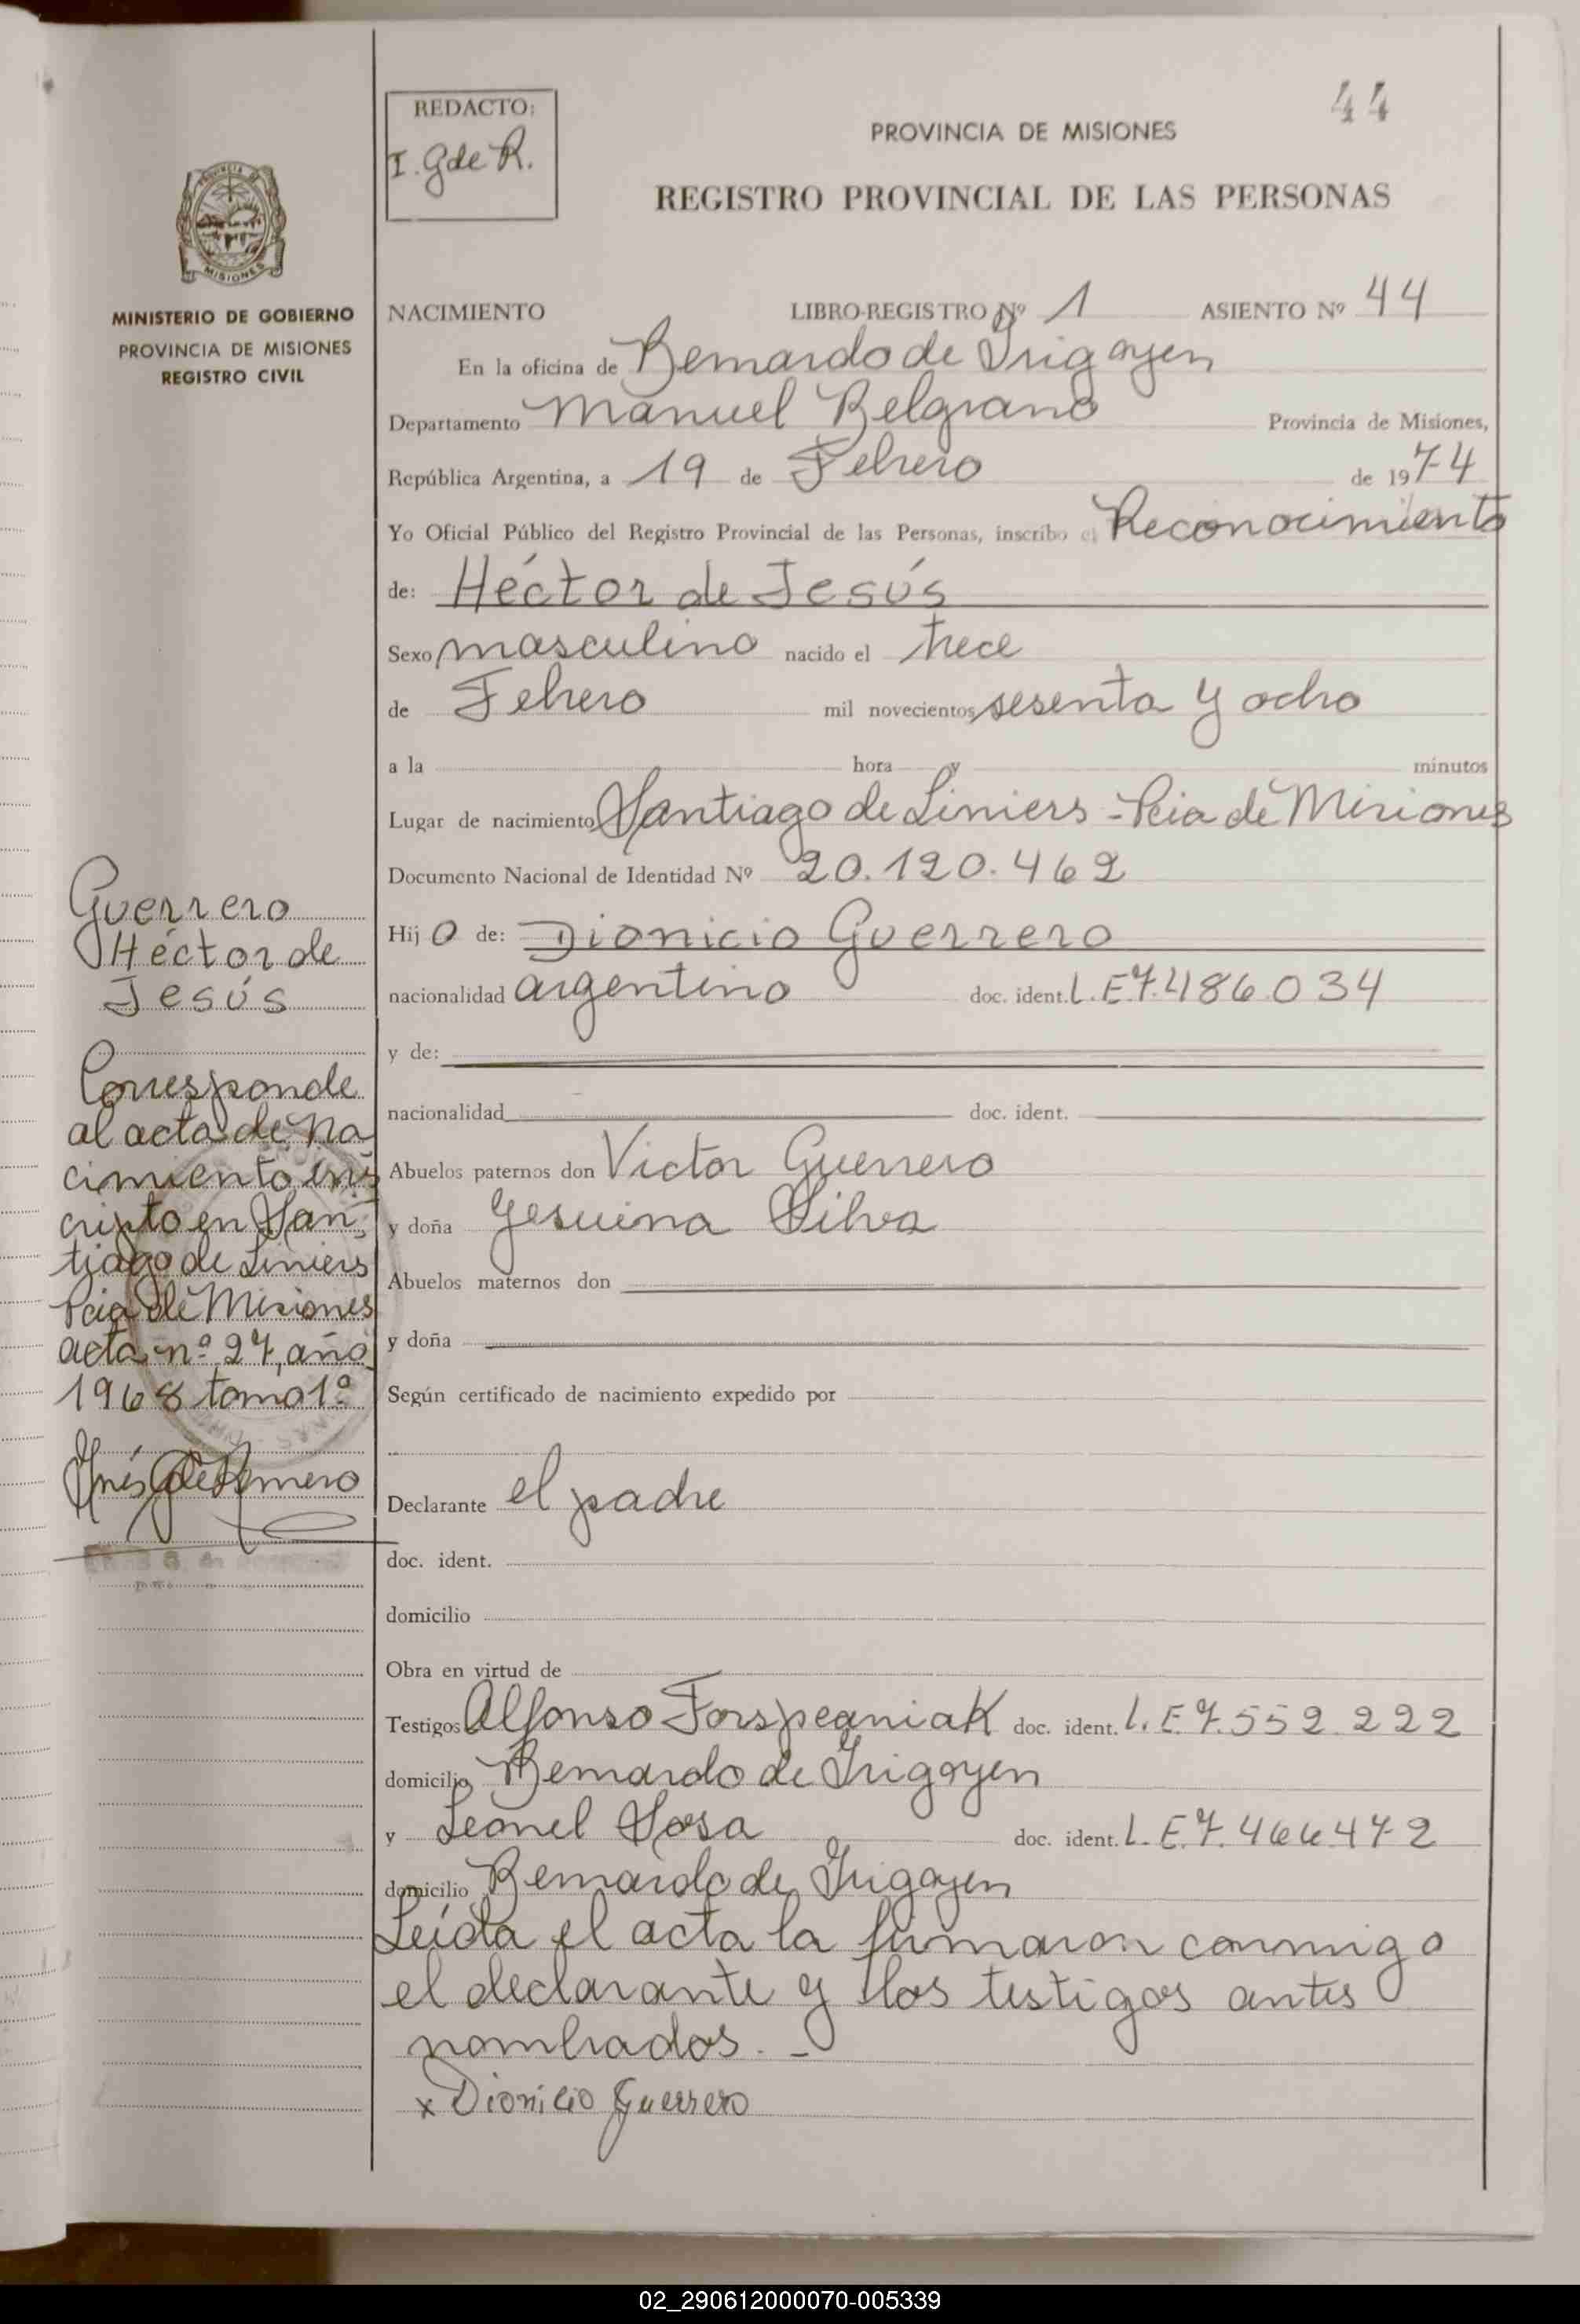 44
REDACTO:
I. G de R.
PROVINCIA DE MISIONES
REGISTRO PROVINCIAL DE LAS PERSONAS
MISIONES
MINISTERIO DE GOBIERNO
PROVINCIA DE MISIONES
REGISTRO CIVIL
NACIMIENTO LIBRO-REGISTRO Nº 1 ASIENTO Nº 44
En la oficina de Bernardo de Irigoyen
Departamento Manuel Belgrano Provincia de Misiones,
República Argentina, a 19 de Febrero de 1974
Yo Oficial Público del Registro Provincial de las Personas, inscribo el Reconocimiento
de: Héctor de Jesús
Sexo masculino nacido el trece
de Febrero mil novecientos sesenta y ocho
a la hora y minutos
Lugar de nacimiento Santiago de Liniers - Pcia de Misiones
Documento Nacional de Identidad Nº 20.120.462
Hij o de: Dionicio Guerrero
nacionalidad argentino doc. ident. L.E 7.486.034
y de:
nacionalidad doc. ident.
Abuelos paternos don Victor Guerrero
y doña Gesuina Silva
Abuelos maternos don
y doña
Según certificado de nacimiento expedido por
Declarante el padre
doc. ident.
domicilio
Obra en virtud de
Testigos Alfonso Forspeaniak doc. ident. L.E 7.552.222
domicilio Bernardo de Irigoyen
y Leonel Sosa doc. ident. L.E.7.466.472
domicilio Bernardo de Irigoyen
Leída el acta la firmaron conmigo
el declarante y los testigos antes
nombrados. -
x Dionicio Guerrero
Guerrero
Héctor de
Jesús
Corresponde
al acta de na
cimiento ins
cripto en San
tiago de Liniers
Pcia de Misiones
acta nº 27, año
1968 tomo 1º
Inés G de Romero
02_290612000070-005339